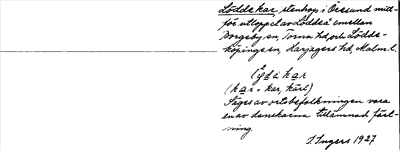 Löddekar, stenhop i Öresund mitt-
för utloppet av Löddeå emellan
Borgeby sn, Torna hd, och Lödde-
köpinge sn, Harjagers hd, Malm. l.
(har = kar, kärl)
Säges av ortsbefolkningen vara
en av danskarna tillämnad fäst-
ning
I. Ingers 1927